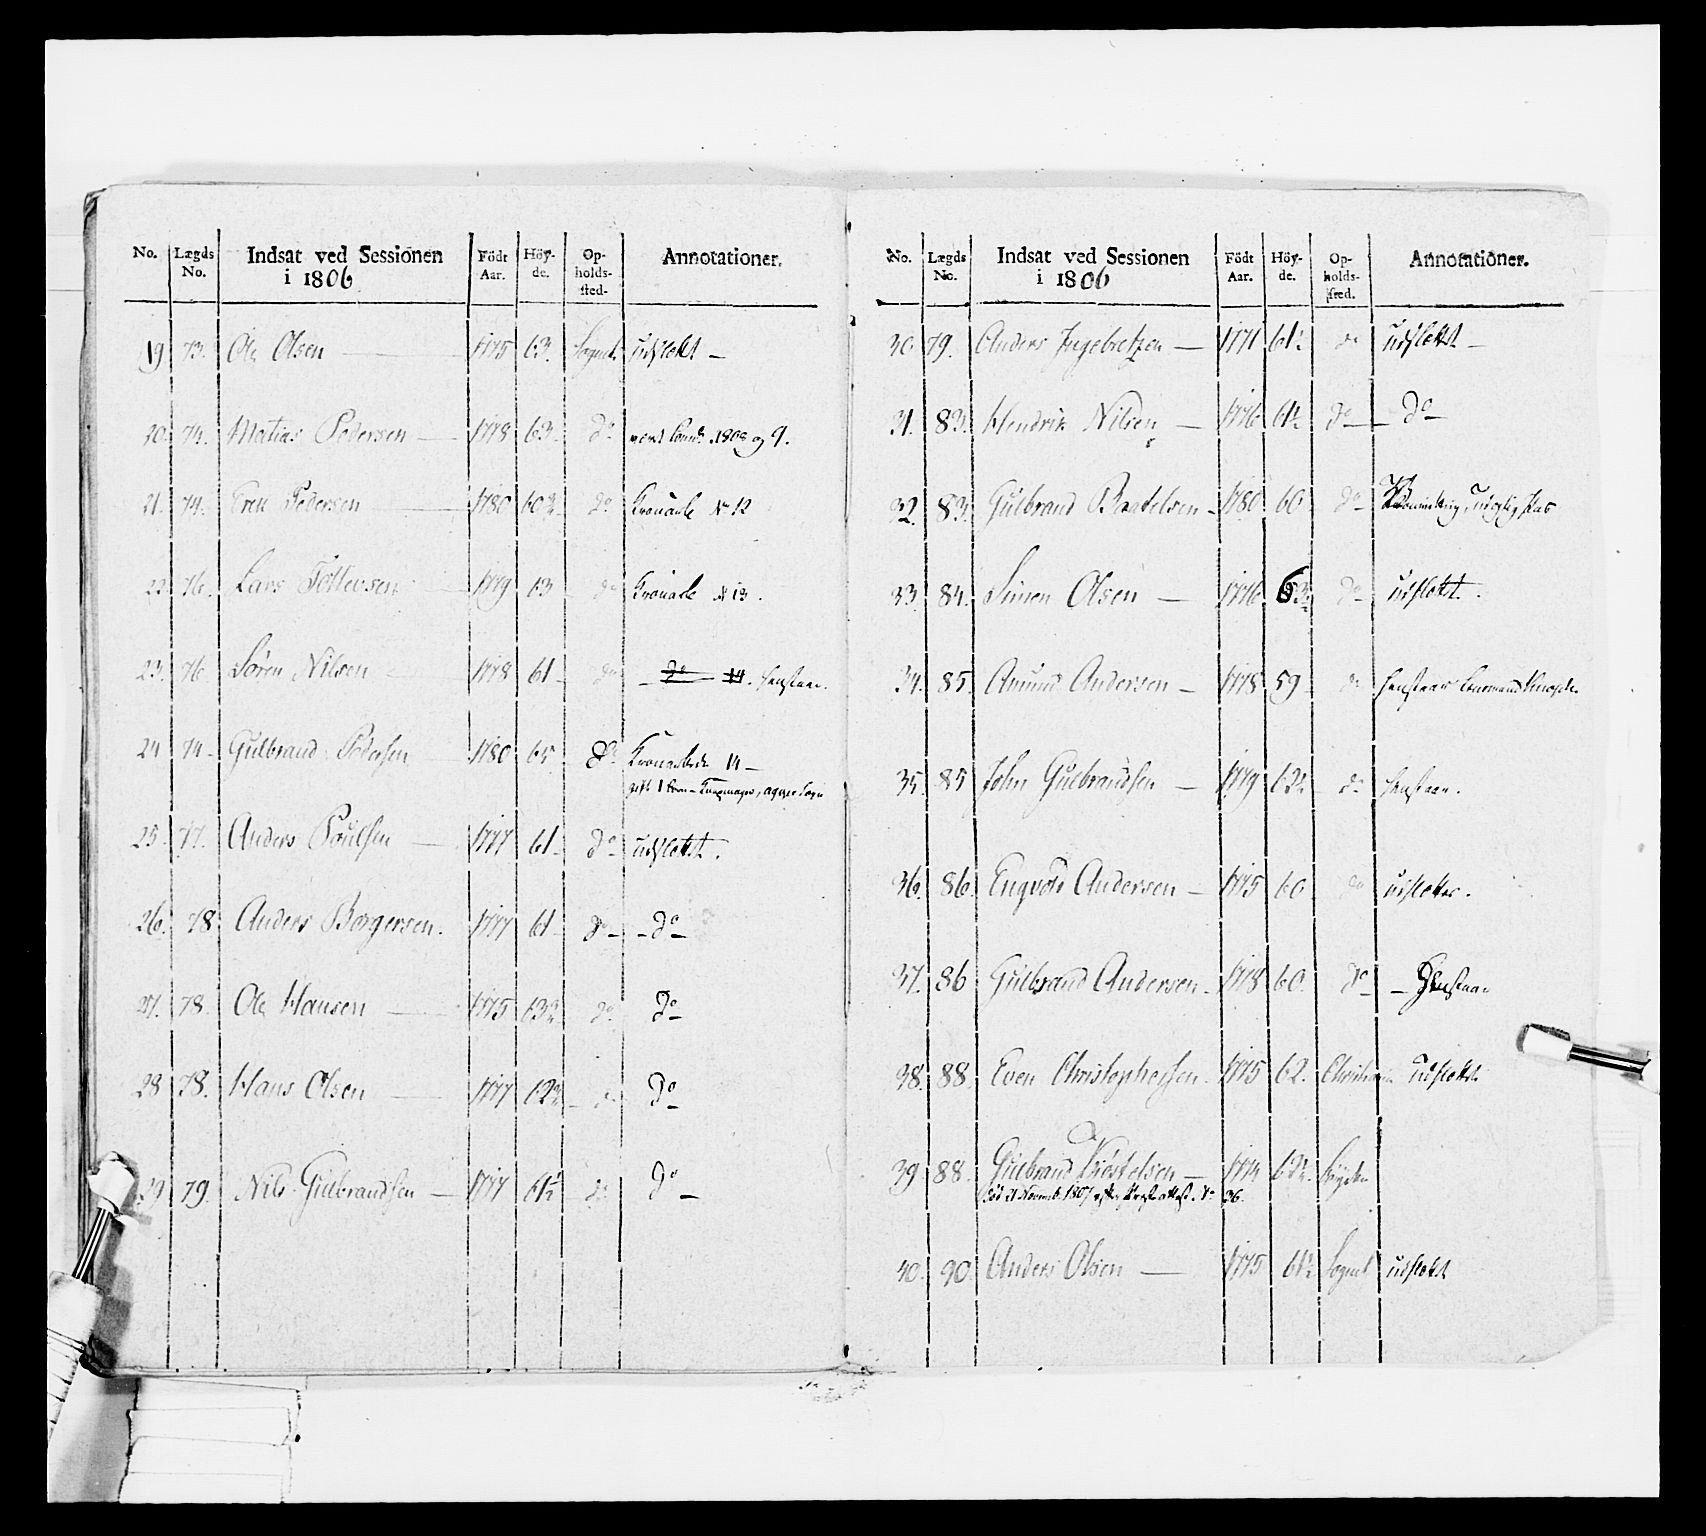 No. Lægds No. Indsat ved Sessionen i 1806 Födt Aar. Höy-de. Op-holds-sted. Annotationer.
19 73. Ole Olsen — 1775 63. Sognet udslettet —
20. 74. Matias Pedersen — 1778 63. do 1808 og 9.
21. 74. Erik Pedersen — 1780 60¾ do No 12
22. 76. Lars 1779 63 do No 13.
23. 76. Sören Nilsen 1778 61 — do — do — 14. henstaar.
24 74 — Gulbrand Pedersen 1780 65 do 14 —
25. 77. Anders Poulsen — 1777 61 — do udslettet.
26. 78 Anders Borgersen. 1777 61 — do — — do —
27. 78. Ole Hansen — 1775 63¾ do do —
28 78. Hans Olsen — 1777 62¾ — do do —
29 79. Nils Gulbrandsen — 1777 61½ do do —
No. Lægds No. Indsat ved Sessionen i 1806 Födt Aar. Höy-de. Op-holds-sted. Annotationer.
30. 79. Anders Ingebretzen — 1771 61½ do udslettet —
31. 83. Hendrik Nilsen — 1776 61½ do — do —
32. 83. Gulbrand Bertelsen — 1780. 60 do
33. 84. Simen Olsen — 1776 63½ do udslettet.
34. 85. Amund Andersen — 1778 59 do henstaar
35. 85 John Gulbrandsen — 1779 62½ do henstaar.
36. 86. Engvold Andersen — 1775 60 do udslettes.
37. 86 Gulbrand Andersen — 1778 60. do — Henstaar
38. 88. Even Christophersen. 1775 62. Christiania udslettet
39. 88. Gulbrand 1774 62½.
död 21 Novemb. 1807 No 36.
40. 90. Anders Olsen — 1775 61½ Sognet udslettet